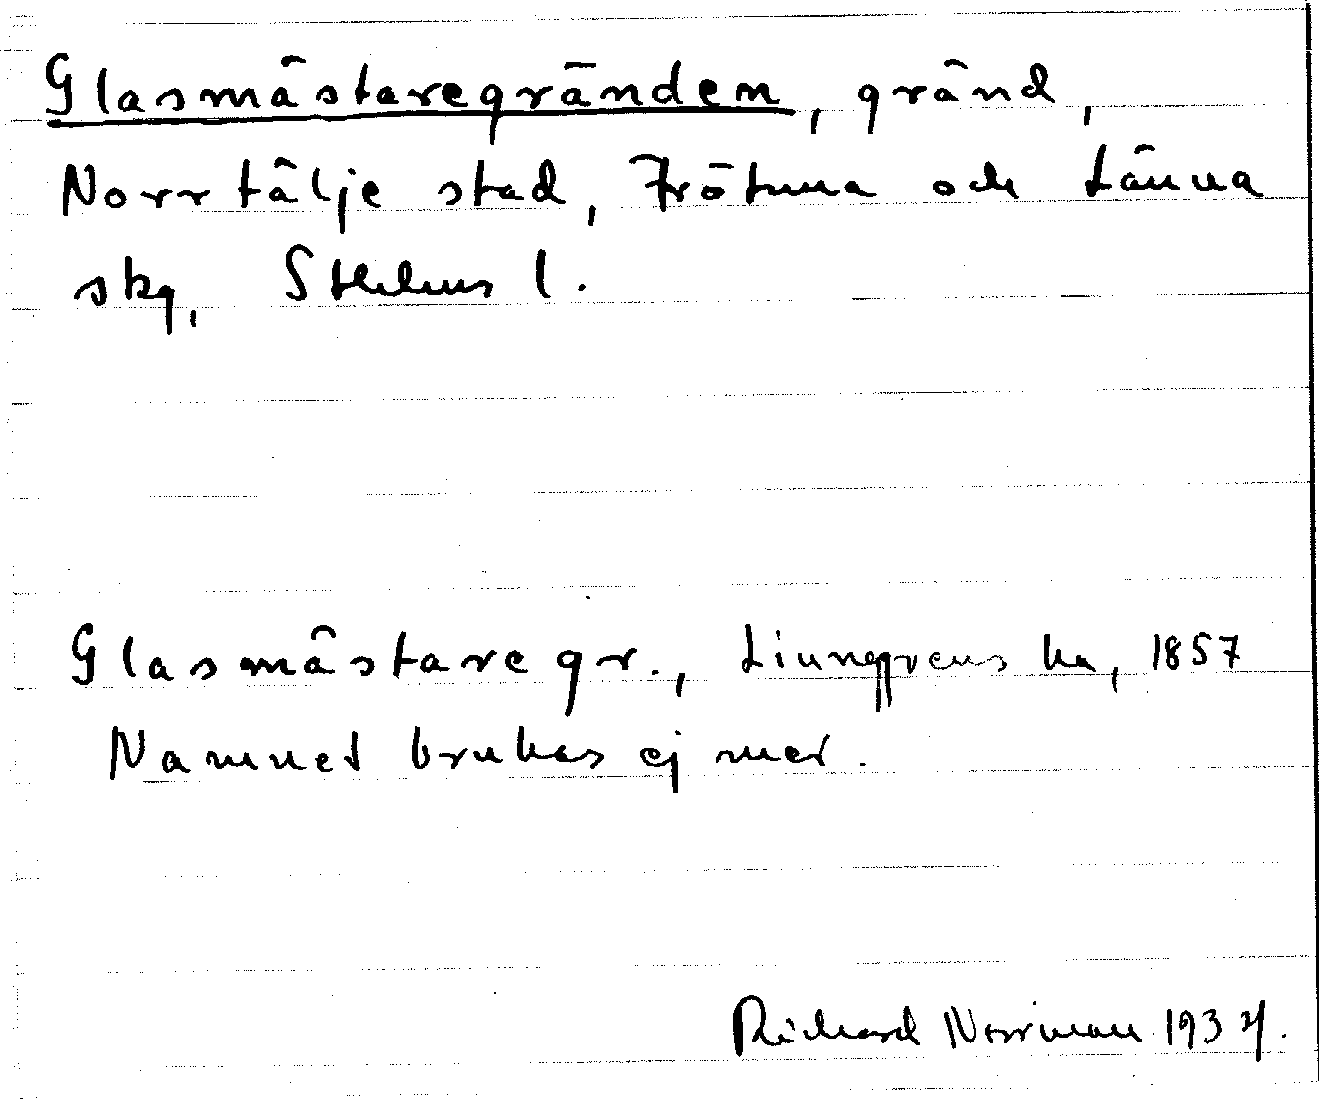 Glasmästaregränden, gränd,
Norrtälje stad, Frötuna och Länna
skg, Sthlms l.
Glasmästaregr., Ljunggrens ka, 1857
Namnet brukas ej mer.
Richard Norrman 1934.